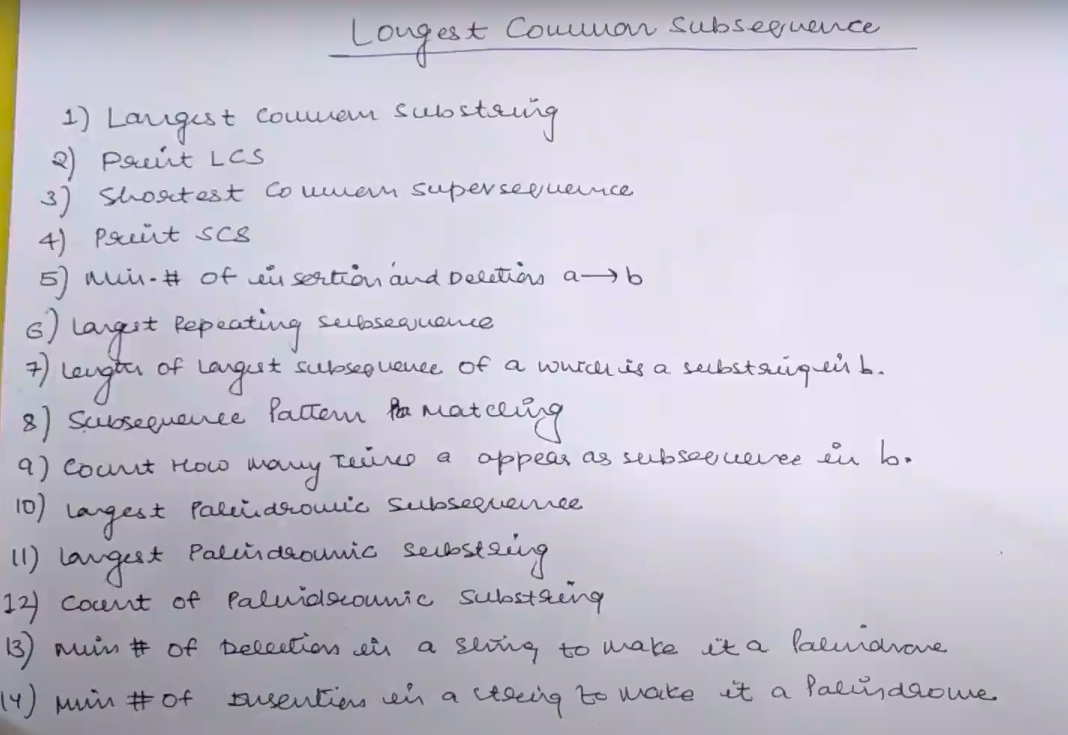 Longest Common Subsequence
1) Largest Common Substring
2) Print LCS
3) Shortest Common Supersequence
4) Print SCS
5) Min. # of insertion and Deletions a → b
6) Largest Repeating Subsequence
7) Length of largest subsequence of a which is a substring in b.
8) Subsequence Pattern Matching
9) Count How many Times a appear as subsequence in b.
10) Largest Palindromic Subsequence
11) Largest Palindromic Substring
12) Count of Palindromic Substring
13) Min # of Deletion in a string to make it a Palindrome
14) Min # of Insertion in a string to make it a Palindrome